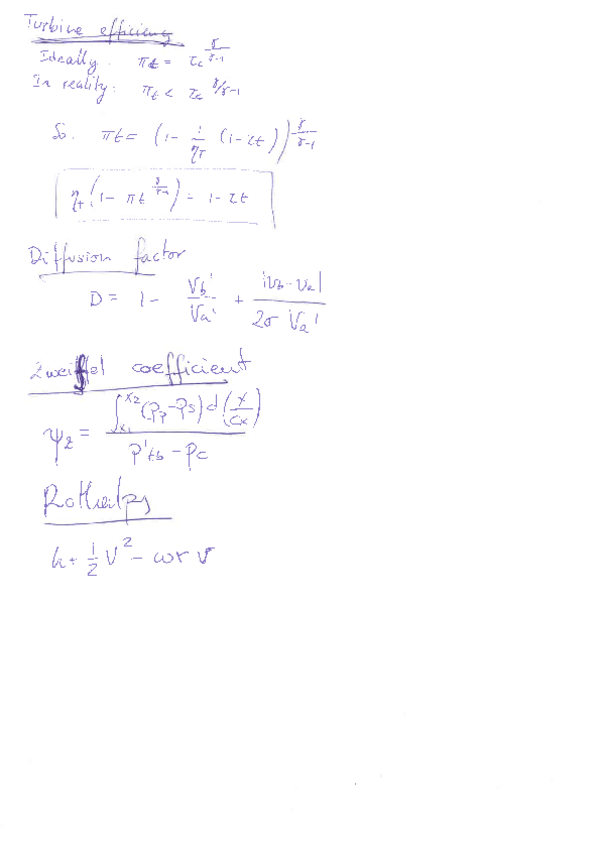 Turbine efficiency
Ideally: πt = τc^(γ/(γ-1))
In reality: πt < τc^(γ/γ-1)
So: πt = (1 - 1/ηT (1 - τt))^(γ/(γ-1))
ηt (1 - πt^(γ/(γ-1))) = 1 - τt
Diffusion factor
D = 1 - Vb'/Va' + |Vb - Va|/(2σ Va')
Zweiffel coefficient
ψz = ∫x1^x2 (Pp - Ps) d(x/cx) / (P'tb - Pc)
Rothalpy
h + 1/2 V² - ωr v